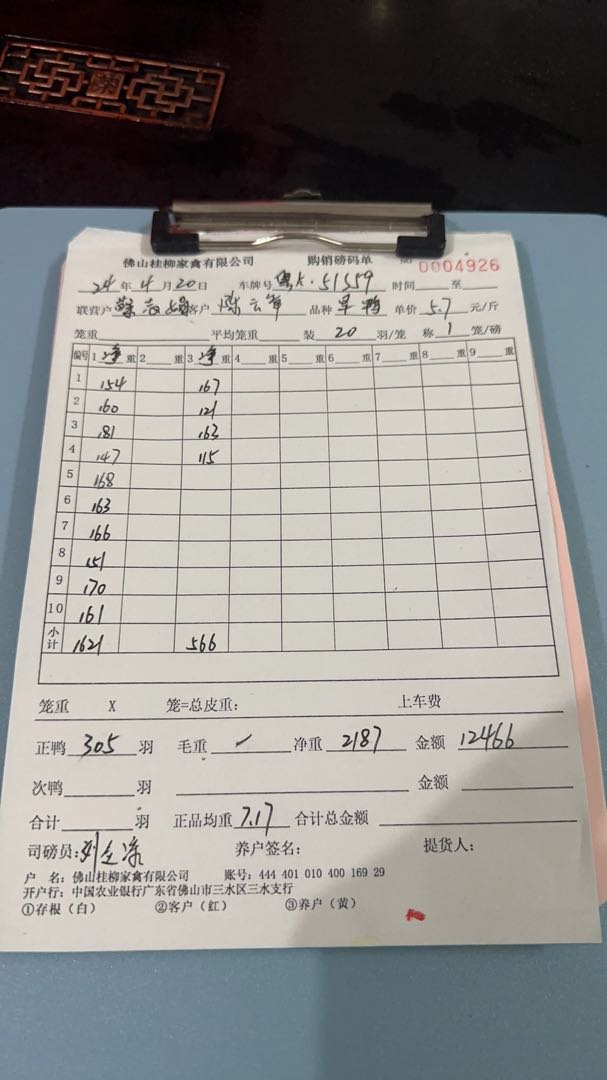 佛山桂柳家禽有限公司 购销磅码单 NO 0004926
24年4月20日 车牌号 粤A·51559 时间 至
联营户 客户 陈云 品种 旱鸭 单价 5.7 元/斤
笼重 平均笼重 装 20 羽/笼 称 1 笼/磅
编号 1 净 重 2 重 3 净 重 4 重 5 重 6 重 7 重 8 重 9 重
1 154 167
2 160 121
3 181 163
4 147 115
5 168
6 163
7 166
8 151
9 170
10 161
小计 1621 566
笼重 X 笼=总皮重: 上车费
正鸭 305 羽 毛重 净重 2187 金额 12466
次鸭 羽 金额
合计 羽 正品均重 7.17 合计总金额
司磅员: 养户签名: 提货人:
户 名: 佛山桂柳家禽有限公司 账号: 444 401 010 400 169 29
开户行: 中国农业银行广东省佛山市三水区三水支行
①存根（白） ②客户（红） ③养户（黄）